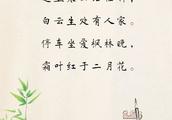 白云生处有人家。
停车坐爱枫林晚，
霜叶红于二月花。